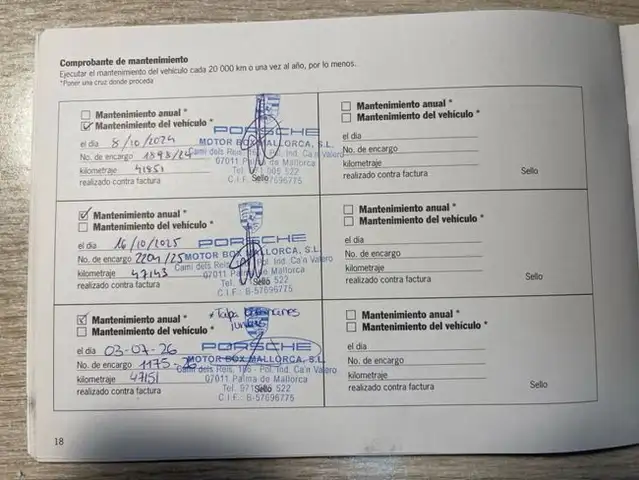 Comprobante de mantenimiento
Ejecutar el mantenimiento del vehículo cada 20 000 km o una vez al año, por lo menos.
*Poner una cruz donde proceda
Mantenimiento anual *
Mantenimiento del vehículo *
el día 8/10/2024
No. de encargo 1898/24
kilometraje 41851
realizado contra factura
Sello
PORSCHE
MOTOR BOX MALLORCA, S.L.
Camí dels Reis, Pol. Ind. Ca'n Valero
07011 Palma de Mallorca
Mantenimiento anual *
Mantenimiento del vehículo *
el día 16/10/2025
No. de encargo 2204/25
kilometraje 47143
realizado contra factura
Sello
PORSCHE
MOTOR BOX MALLORCA, S.L.
Camí dels Reis, Pol. Ind. Ca'n Valero
07011 Palma de Mallorca
Tel. 522
C.I.F.: B-57696775
Mantenimiento anual *
Mantenimiento del vehículo *
el día 03-07-26
No. de encargo 1175-26
kilometraje 47151
realizado contra factura
Sello
* Tapa
PORSCHE
MOTOR BOX MALLORCA, S.L.
Camí dels Reis, Pol. Ind. Ca'n Valero
07011 Palma de Mallorca
Tel. 971 522
C.I.F.: B-57696775
Mantenimiento anual *
Mantenimiento del vehículo *
el día
No. de encargo
kilometraje
realizado contra factura
Sello
Mantenimiento anual *
Mantenimiento del vehículo *
el día
No. de encargo
kilometraje
realizado contra factura
Sello
Mantenimiento anual *
Mantenimiento del vehículo *
el día
No. de encargo
kilometraje
realizado contra factura
Sello
18